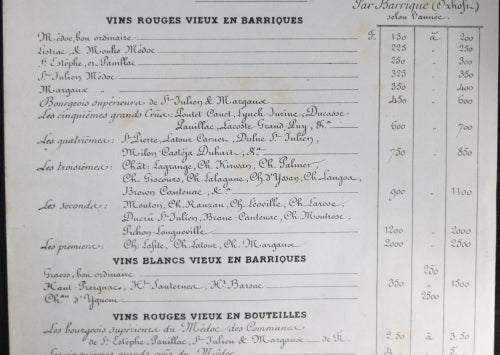 Par Barrique (Oxhoft)
selon l'année.
VINS ROUGES VIEUX EN BARRIQUES
Médoc, bon ordinaire F. 150 à 200
Listrac, & Moulis Médoc 225 " 250
St Estèphe, en Pauillac 250 " 300
St Julien Médoc 325 " 350
Margaux 350 " 400
Bourgeois supérieurs de St Julien & Margaux 450 " 600
Les cinquièmes grands Crûs: Pontet Canet, Lynch Ducasse
Pauillac, Lacoste Grand Puy, &a 600 " 700
Les quatrièmes: St Pierre, Latour Carnet, Duluc St Julien,
Milon Castéja Duhart, &a 750 " 850
Les troisièmes: Chât: Lagrange, Ch. Kirwan, Ch. Palmer,
Ch. Giscours, Ch. Lalagune, Ch. d'Yssan, Ch. Langoa,
Brown Cantenac, &a 900 " 1100
Les seconds: Mouton, Ch. Rauzan, Ch. Léoville, Ch. Larose,
Ducru St Julien, Brane-Cantenac, Ch. Montrose,
Pichon-Longueville 1200 " 2000
Les premiers: Ch. Lafite, Ch. Latour, Ch. Margaux 2000 " 2500
VINS BLANCS VIEUX EN BARRIQUES
Graves, bon ordinaire " 250
Haut-Preignac, Ht Sauternes, Ht Barsac 350 " 1500
Châu d'Yquem " 2500
VINS ROUGES VIEUX EN BOUTEILLES
Les bourgeois supérieurs du Médoc des Communes
de St Estèphe, Pauillac, St Julien & Margaux de F. 2.50 à 3.50
Les cinquièmes grands crûs du Médoc 4. " 5.